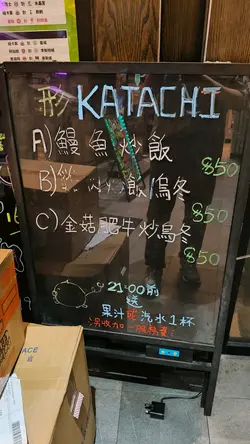 形 KATACHI
A) 鰻魚炒飯
$50
B) 炒飯/烏冬
$50
C) 金菇肥牛炒烏冬
$50
21:00前
送
果汁或汽水1杯
另收加一服務費